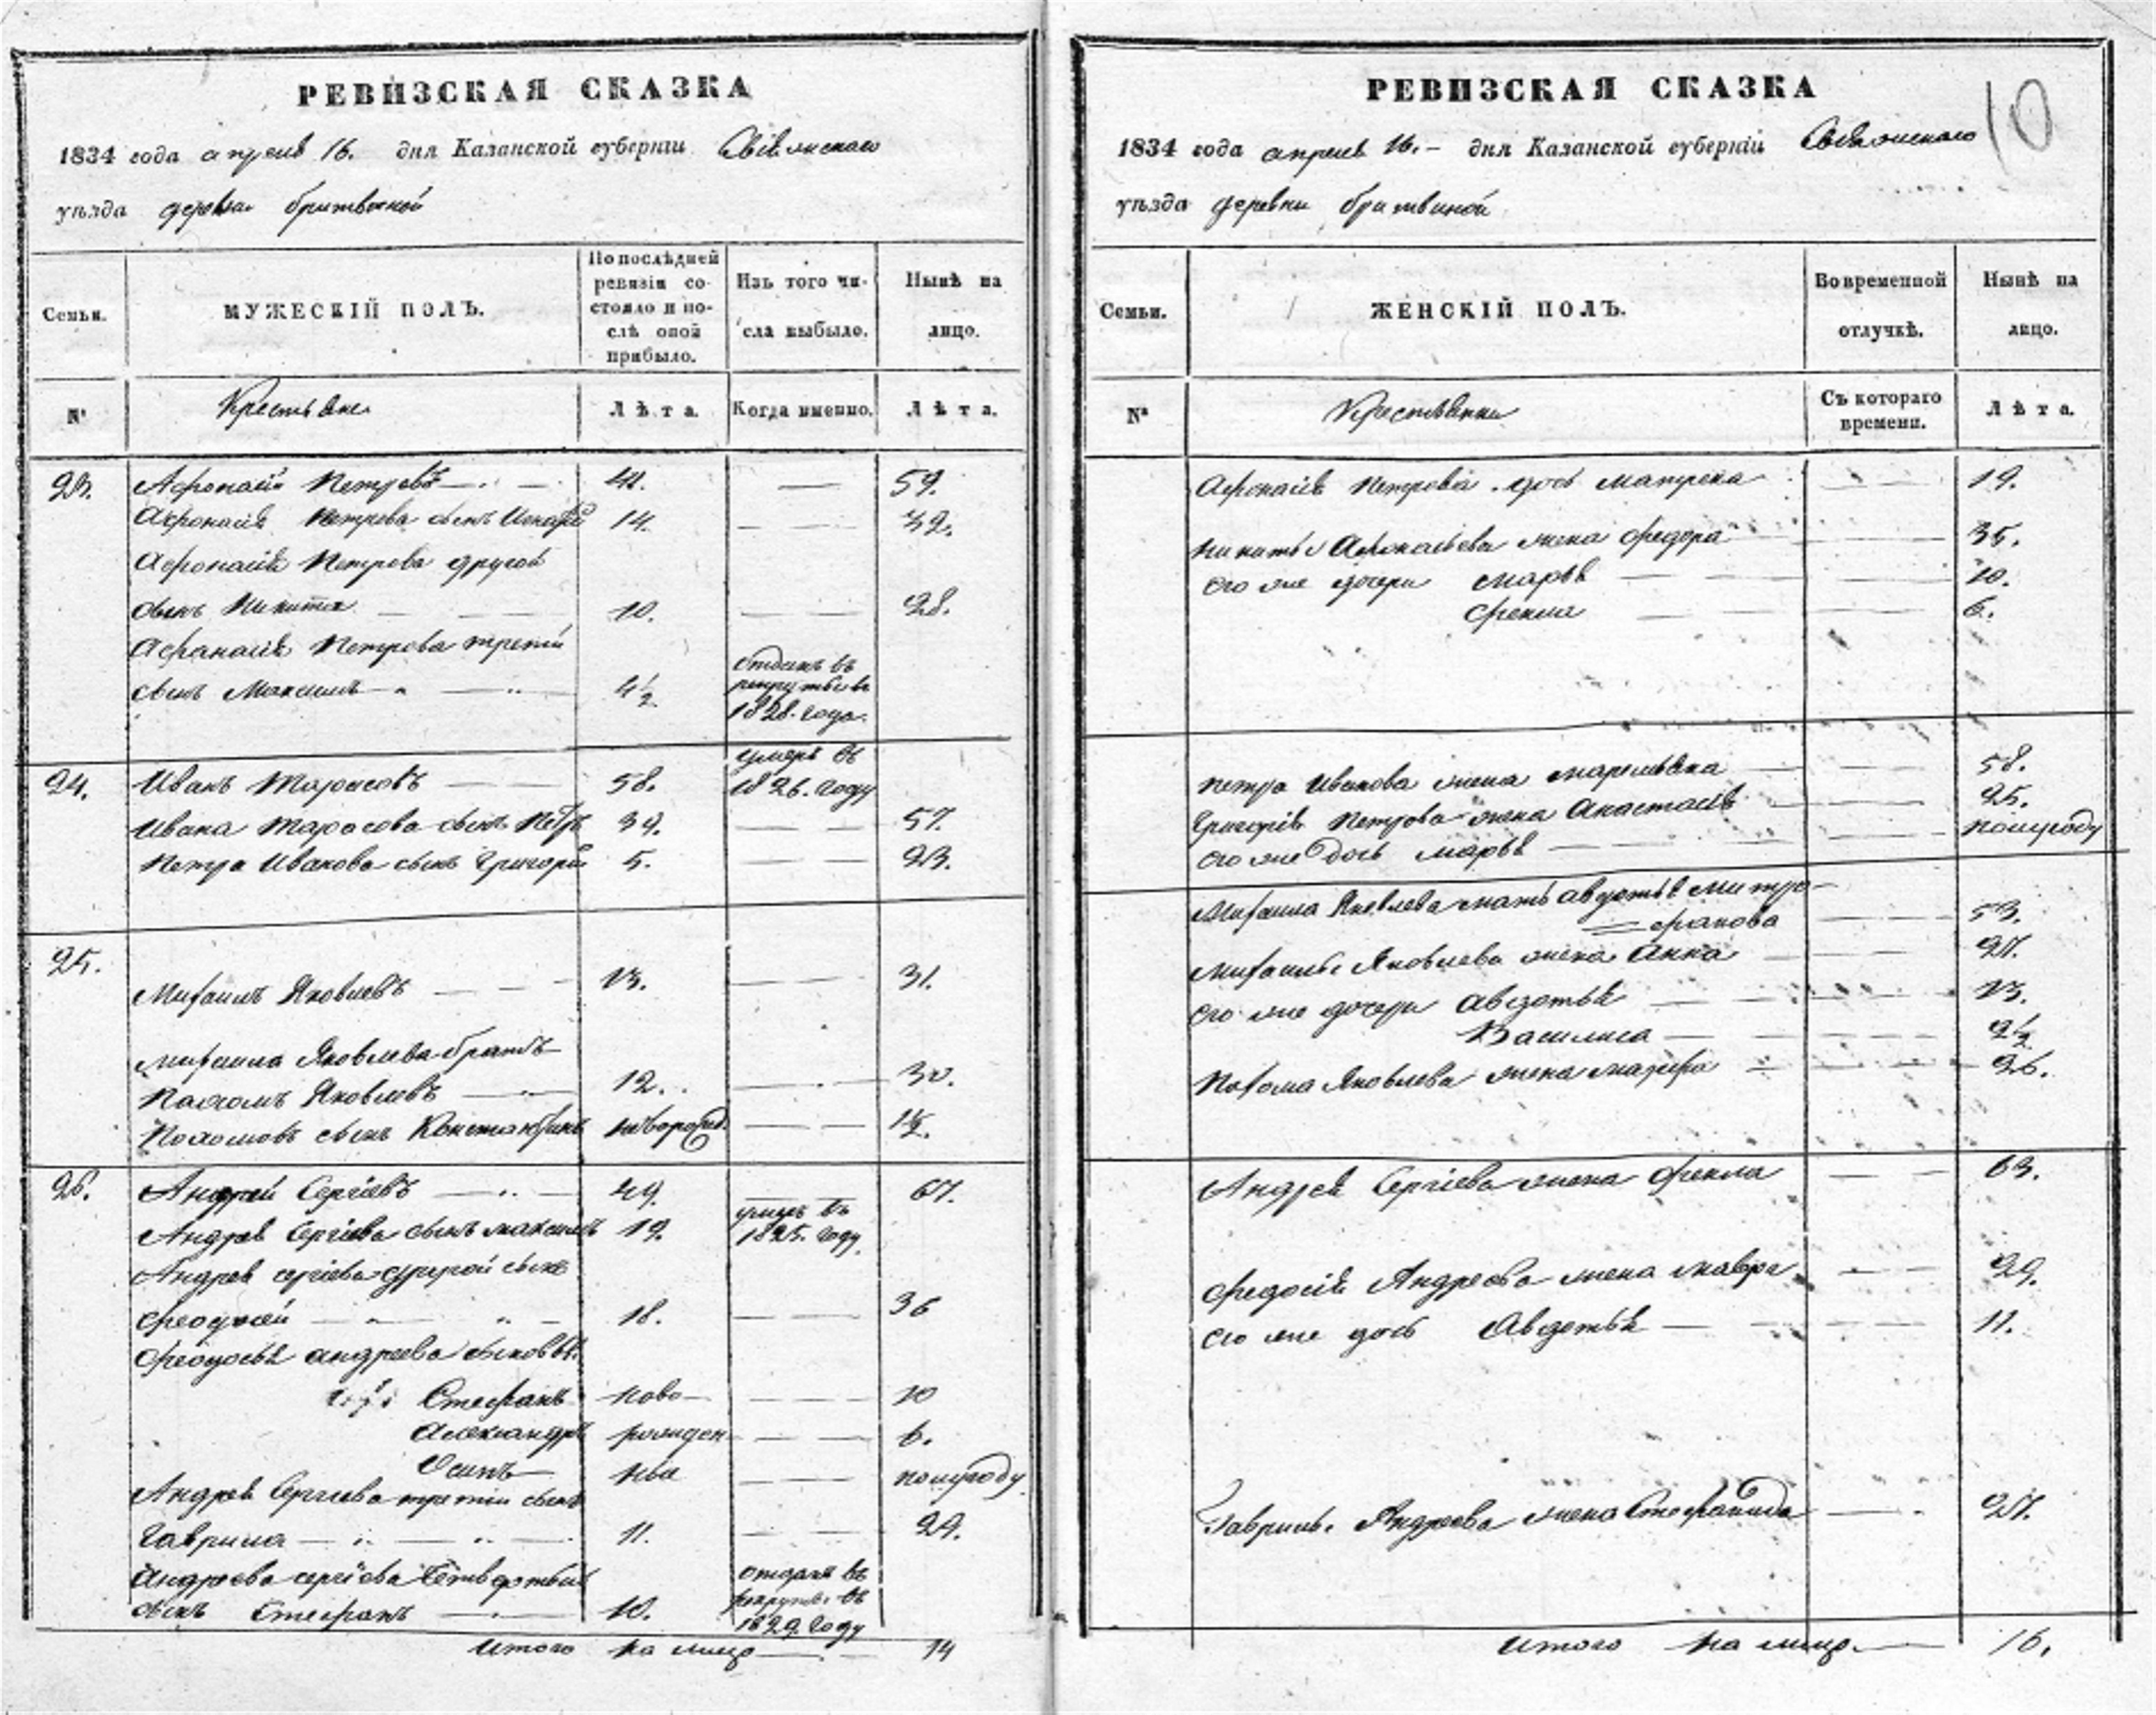 РЕВИЗСКАЯ СКАЗКА
1834 года апреля 16. дня Казанской губерніи Свіяжскаго
уѣзда деревни бритвиной
Семьи.
МУЖЕСКІЙ ПОЛЪ.
По послѣдней ревизіи состояло и послѣ оной прибыло.
Изъ того числа выбыло.
Нынѣ на лицо.
№
Крестьяне
Лѣта.
Когда именно.
Лѣта.
23. Афонасій Петровъ 41. 59.
Афонасія Петрова сынъ 14. 32.
Афонасія Петрова другой
сынъ Никита 10. 28.
Афанасія Петрова третій
сынъ Максимъ 4½
отданъ въ
рекруты въ
1828. года.
24. Иванъ Тарасовъ 58.
умеръ въ
1826. году
Ивана Тарасова сынъ Петръ 39. 57.
Петра Иванова сынъ Григорій 5. 23.
25.
Михаилъ Яковлевъ 13. 31.
Михаила Яковлева братъ
Пахомъ Яковлевъ 12. 30.
Пахомовъ сынъ Константинъ новорожд. 1½.
26. Андрей Сергіевъ 49. 67.
Андрея Сергіева сынъ Максимъ 19.
умеръ въ
1825. году.
Андрея сергіева другой сынъ
Феодосей 18. 36
Феодосья андреева сыновья
Стефанъ ново- 10
Александръ рожден- 6.
Осипъ ные полугоду
Андрея Сергіева третій сынъ
Гаврила 11. 29.
Андреева сергіева четвертый
сынъ Стефанъ 10.
отданъ въ
рекруты въ
1829. году
Итого на лицо 14
РЕВИЗСКАЯ СКАЗКА
10
1834 года апреля 16. дня Казанской губерніи Свіяжскаго
уѣзда деревни бритвиной
Семьи.
ЖЕНСКІЙ ПОЛЪ.
Во временной отлучкѣ.
Нынѣ на лицо.
№
Крестьянки
Съ котораго времени.
Лѣта.
Афонасія Петрова дочь матрена 19.
Никиты Афонасьева жена федора 35.
его же дочери марья 10.
фекла 6.
Петра Иванова жена маремьяна 58.
Григорія Петрова жена Анастасія 25.
его же дочь марья полугоду
Михаила Яковлева мать авдотья митро-
фанова 53.
Михаилы Яковлева жена Анна 27.
его же дочери авдотья 13.
Василиса 2½
Пахома Яковлева жена 26.
Андрея Сергіева жена фекла 63.
Федосія Андреева жена мавра 29.
его же дочь Авдотья 11.
Гаврилы Андреева жена Стефанида 27.
Итого на лицо 16.